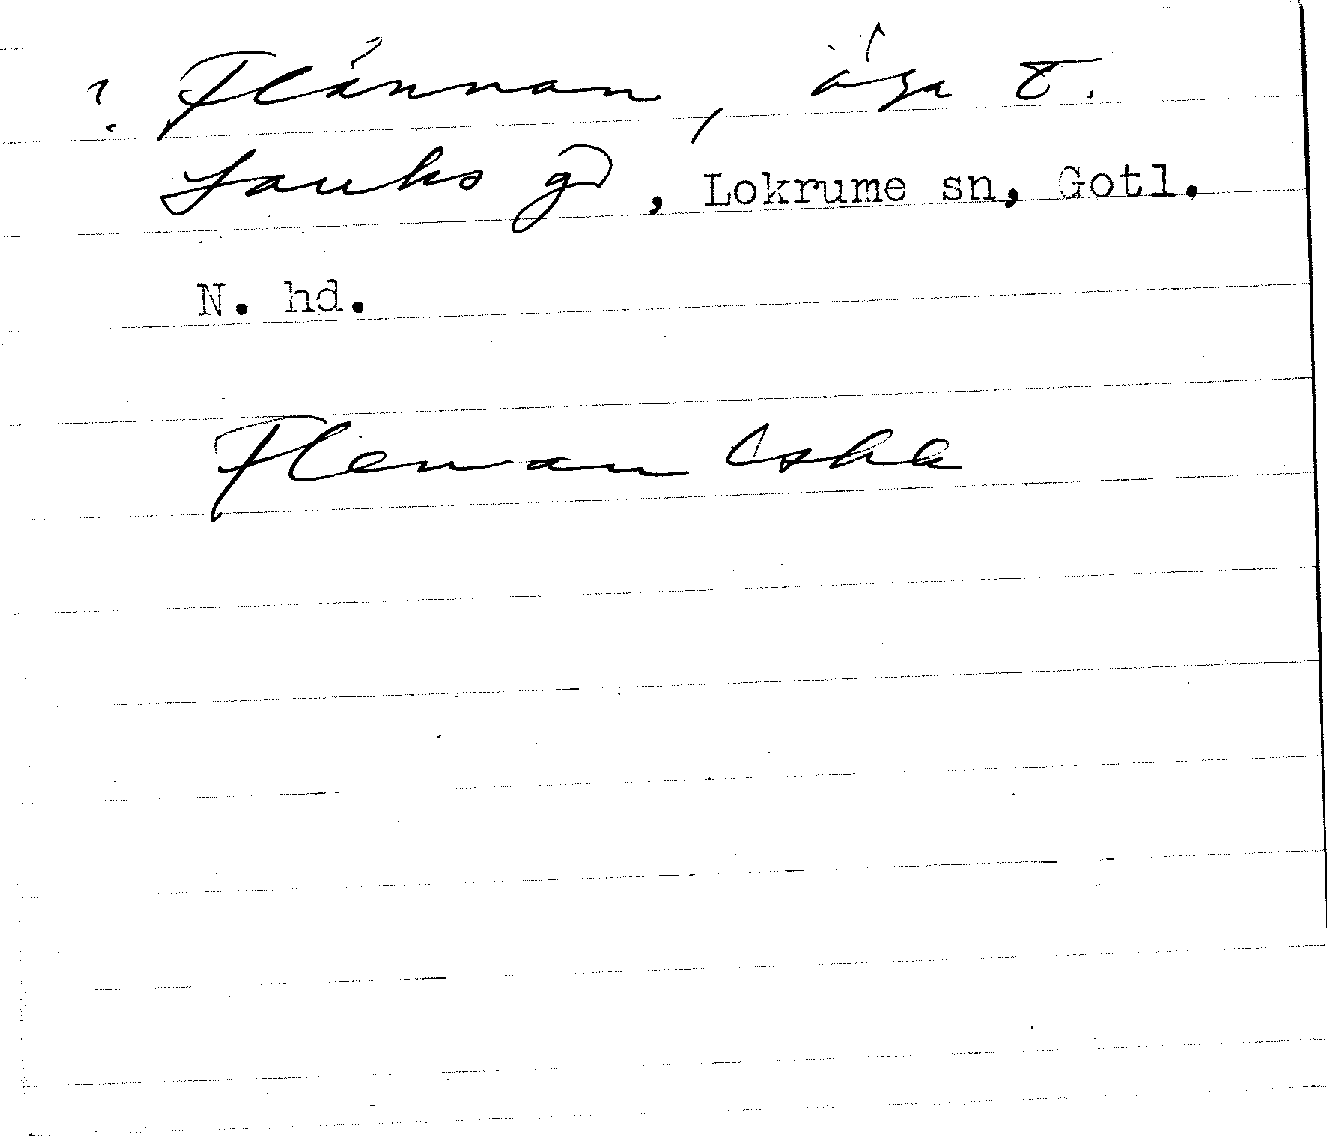 ? Flännan, äga t.
Lauks gd, Lokrume sn, Gotl.
N. hd.
Fleman Eske